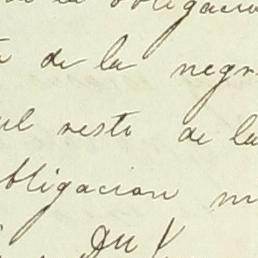 la obligacion
de la negr
ul resto de la
obligacion m